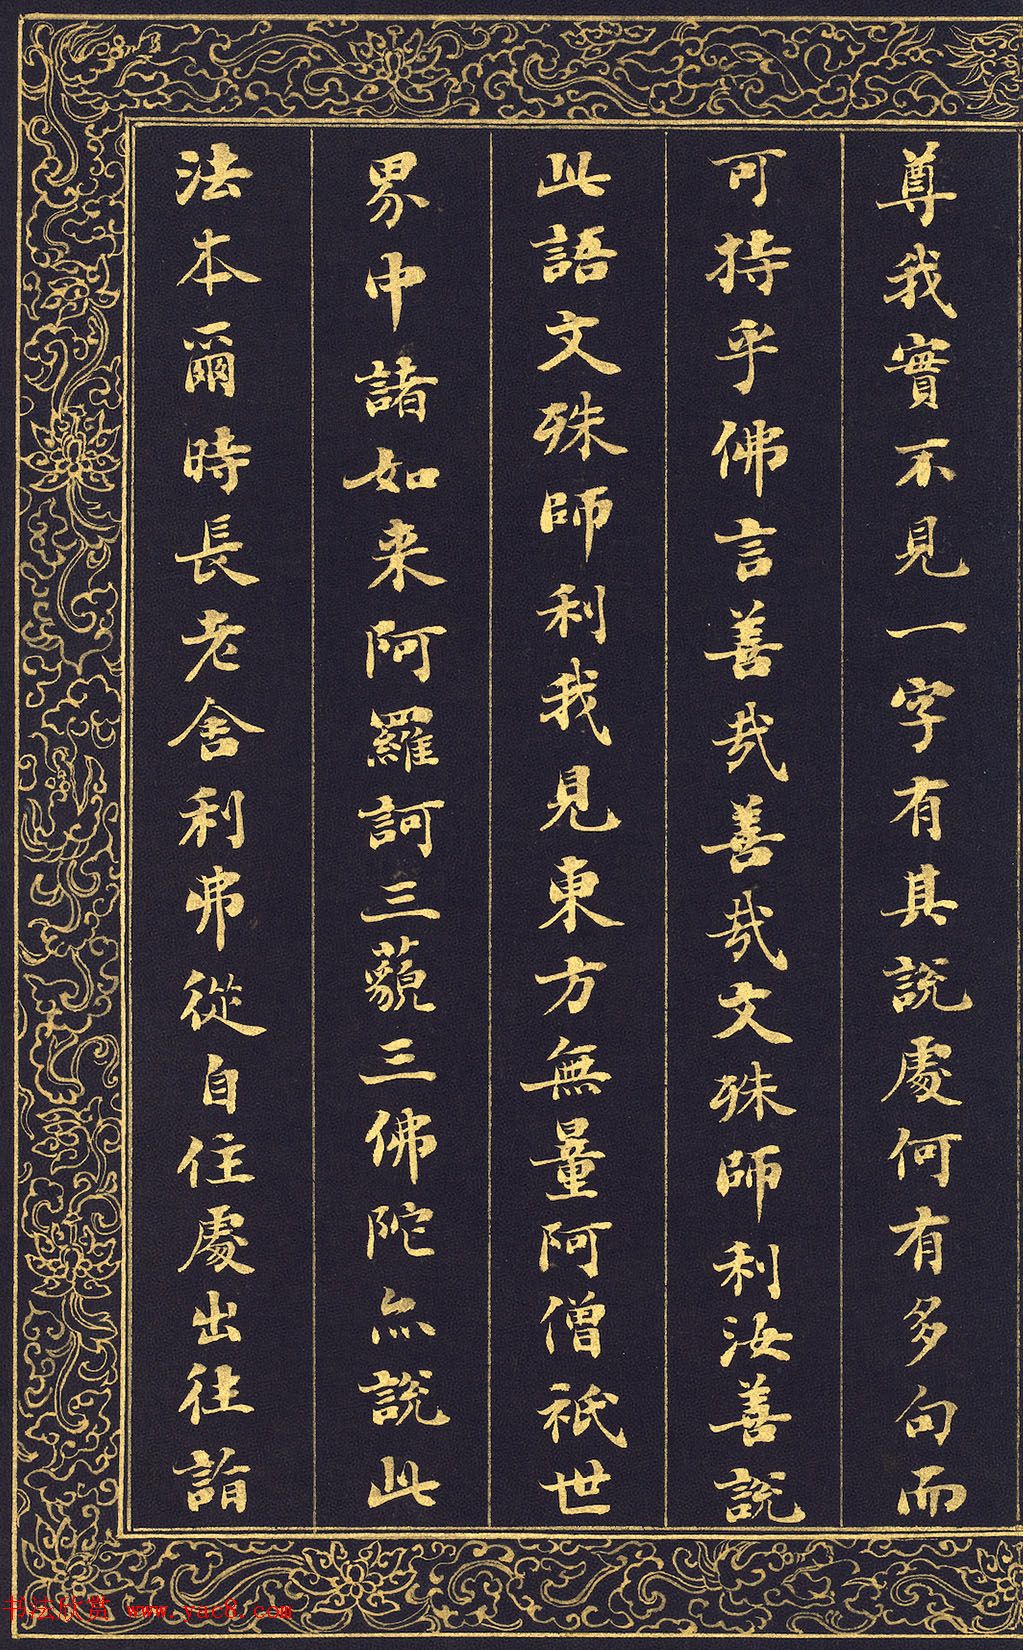 尊我實不見一字有其說處何有多句而
可持乎佛言善哉善哉文殊師利汝善說
此語文殊師利我見東方無量阿僧祇世
界中諸如来阿羅訶三藐三佛陀亦說此
法本爾時長老舍利弗從自住處出往詣
书法欣赏 www.yac8.com